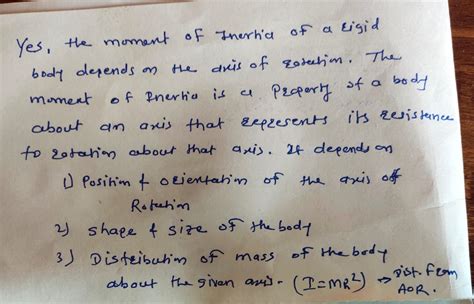 Yes, the moment of Inertia of a rigid
body depends on the axis of rotation. The
moment of Inertia is a Property of a body
about an axis that represents its resistance
to rotation about that axis. It depends on
1) Position & orientation of the axis of
Rotation
2) shape & size of the body
3) Distribution of mass of the body
about the given axis. (I = MR²) → dist. from
AOR.